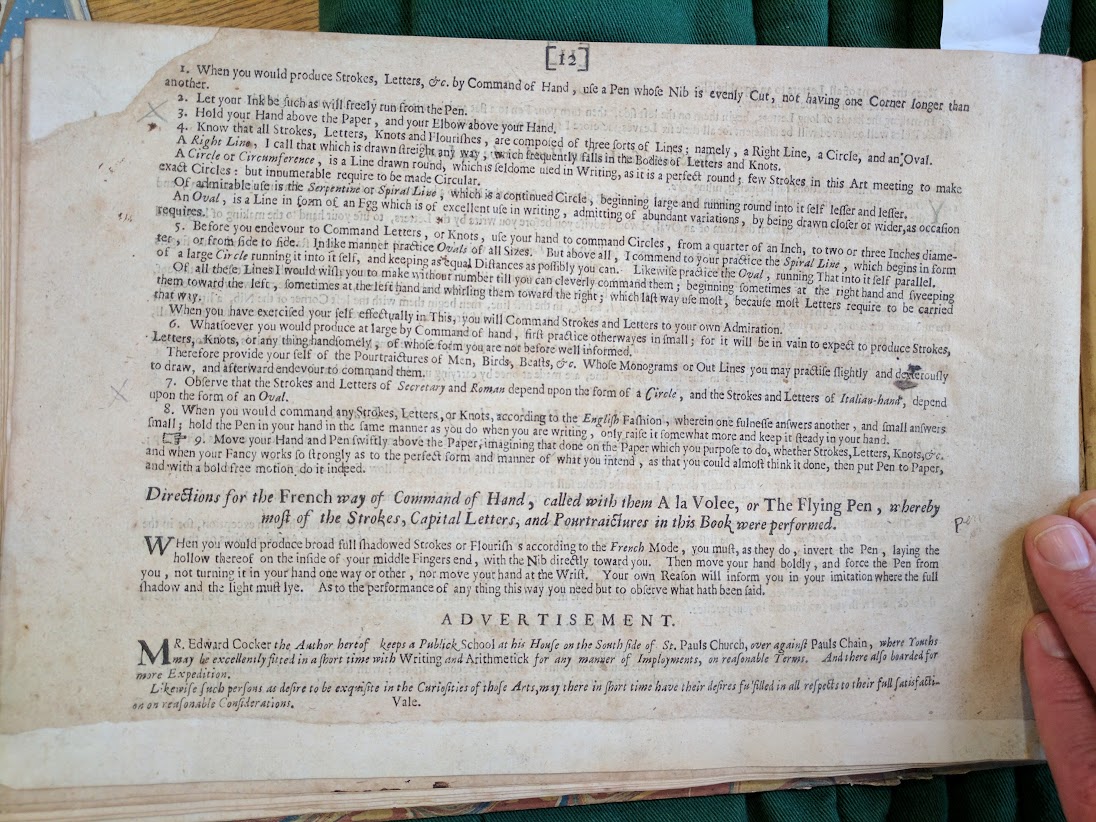 [12]
1. When you would produce Strokes, Letters, &c. by Command of Hand, uſe a Pen whoſe Nib is evenly Cut, not having one Corner longer than
another.
2. Let your Ink be ſuch as will freely run from the Pen.
3. Hold your Hand above the Paper, and your Elbow above your Hand.
4. Know that all Strokes, Letters, Knots and Flouriſhes, are compoſed of three ſorts of Lines; namely, a Right Line, a Circle, and an Oval.
A Right Line, I call that which is drawn ſtreight any way; which frequently falls in the Bodies of Letters and Knots.
A Circle or Circumference, is a Line drawn round, which is ſeldome uſed in Writing, as it is a perfect round; few Strokes in this Art meeting to make
exact Circles: but innumerable require to be made Circular.
Of admirable uſe is the Serpentine or Spiral Line, which is a continued Circle, beginning large and running round into it ſelf leſſer and leſſer.
An Oval, is a Line in form of an Egg which is of excellent uſe in writing, admitting of abundant variations, by being drawn cloſer or wider, as occaſion
requires.
5. Before you endevour to Command Letters, or Knots, uſe your hand to command Circles, from a quarter of an Inch, to two or three Inches diame-
ter, or from ſide to ſide. In like manner practice Ovals of all Sizes. But above all, I commend to your practice the Spiral Line, which begins in form
of a large Circle running it into it ſelf, and keeping as equal Diſtances as poſſibly you can. Likewiſe practice the Oval, running That into it ſelf parallel.
Of all theſe Lines I would wiſh you to make without number till you can cleverly command them; beginning ſometimes at the right hand and ſweeping
them toward the left, ſometimes at the left hand and whirling them toward the right; which laſt way uſe moſt, becauſe moſt Letters require to be carried
that way.
When you have exerciſed your ſelf effectually in This, you will Command Strokes and Letters to your own Admiration.
6. Whatſoever you would produce at large by Command of hand, firſt practice otherwayes in ſmall; for it will be in vain to expect to produce Strokes,
Letters, Knots, or any thing handſomely, of whoſe form you are not before well informed.
Therefore provide your ſelf of the Pourtraictures of Men, Birds, Beaſts, &c. Whoſe Monograms or Out Lines you may practiſe ſlightly and dexterouſly
to draw, and afterward endevour to command them.
7. Obſerve that the Strokes and Letters of Secretary and Roman depend upon the form of a Circle, and the Strokes and Letters of Italian-hand, depend
upon the form of an Oval.
8. When you would command any Strokes, Letters, or Knots, according to the Engliſh Faſhion, wherein one fulneſſe anſwers another, and ſmall anſwers
ſmall; hold the Pen in your hand in the ſame manner as you do when you are writing, only raiſe it ſomewhat more and keep it ſteady in your hand.
☞ 9. Move your Hand and Pen ſwiftly above the Paper, imagining that done on the Paper which you purpoſe to do, whether Strokes, Letters, Knots, &c.
and when your Fancy works ſo ſtrongly as to the perfect form and manner of what you intend, as that you could almoſt think it done, then put Pen to Paper,
and with a bold free motion do it indeed.
Directions for the French way of Command of Hand, called with them A la Volee, or The Flying Pen, whereby
moſt of the Strokes, Capital Letters, and Pourtraictures in this Book were performed.
WHen you would produce broad full ſhadowed Strokes or Flouriſh s according to the French Mode, you muſt, as they do, invert the Pen, laying the
hollow thereof on the inſide of your middle Fingers end, with the Nib directly toward you. Then move your hand boldly, and force the Pen from
you, not turning it in your hand one way or other, nor move your hand at the Wriſt. Your own Reaſon will inform you in your imitation where the full
ſhadow and the light muſt lye. As to the performance of any thing this way you need but to obſerve what hath been ſaid.
ADVERTISEMENT.
MR. Edward Cocker the Author hereof keeps a Publick School at his Houſe on the South ſide of St. Pauls Church, over againſt Pauls Chain, where Youths
may be excellently fitted in a ſhort time with Writing and Arithmetick for any manner of Imployments, on reaſonable Terms. And there alſo boarded for
more Expedition.
Likewiſe ſuch perſons as deſire to be exquiſite in the Curioſities of thoſe Arts, may there in ſhort time have their deſires fulfilled in all reſpects to their full ſatisfacti-
on on reaſonable Conſiderations. Vale.